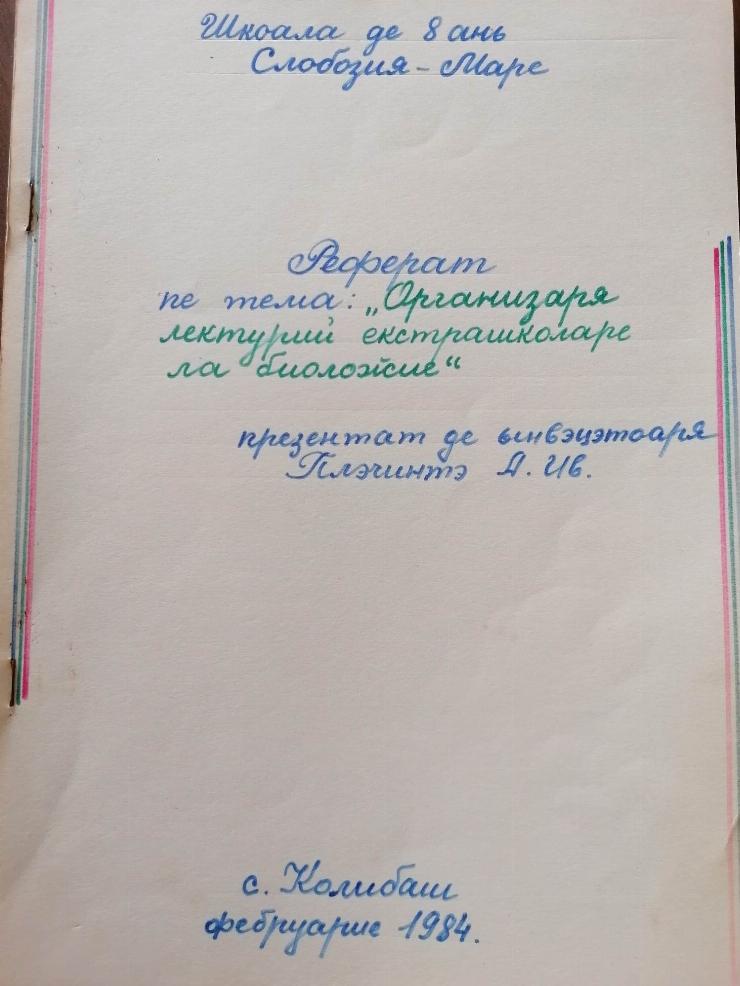 Школа де 8 ань
Слобозия-Маре
Реферат
пе тема: „Организаря
лектурий екстрашколаре
ла биоложие“
презентат де ынвэцэтоаря
Плэчинтэ А. Ив.
с. Колибаш
фебруарие 1984.